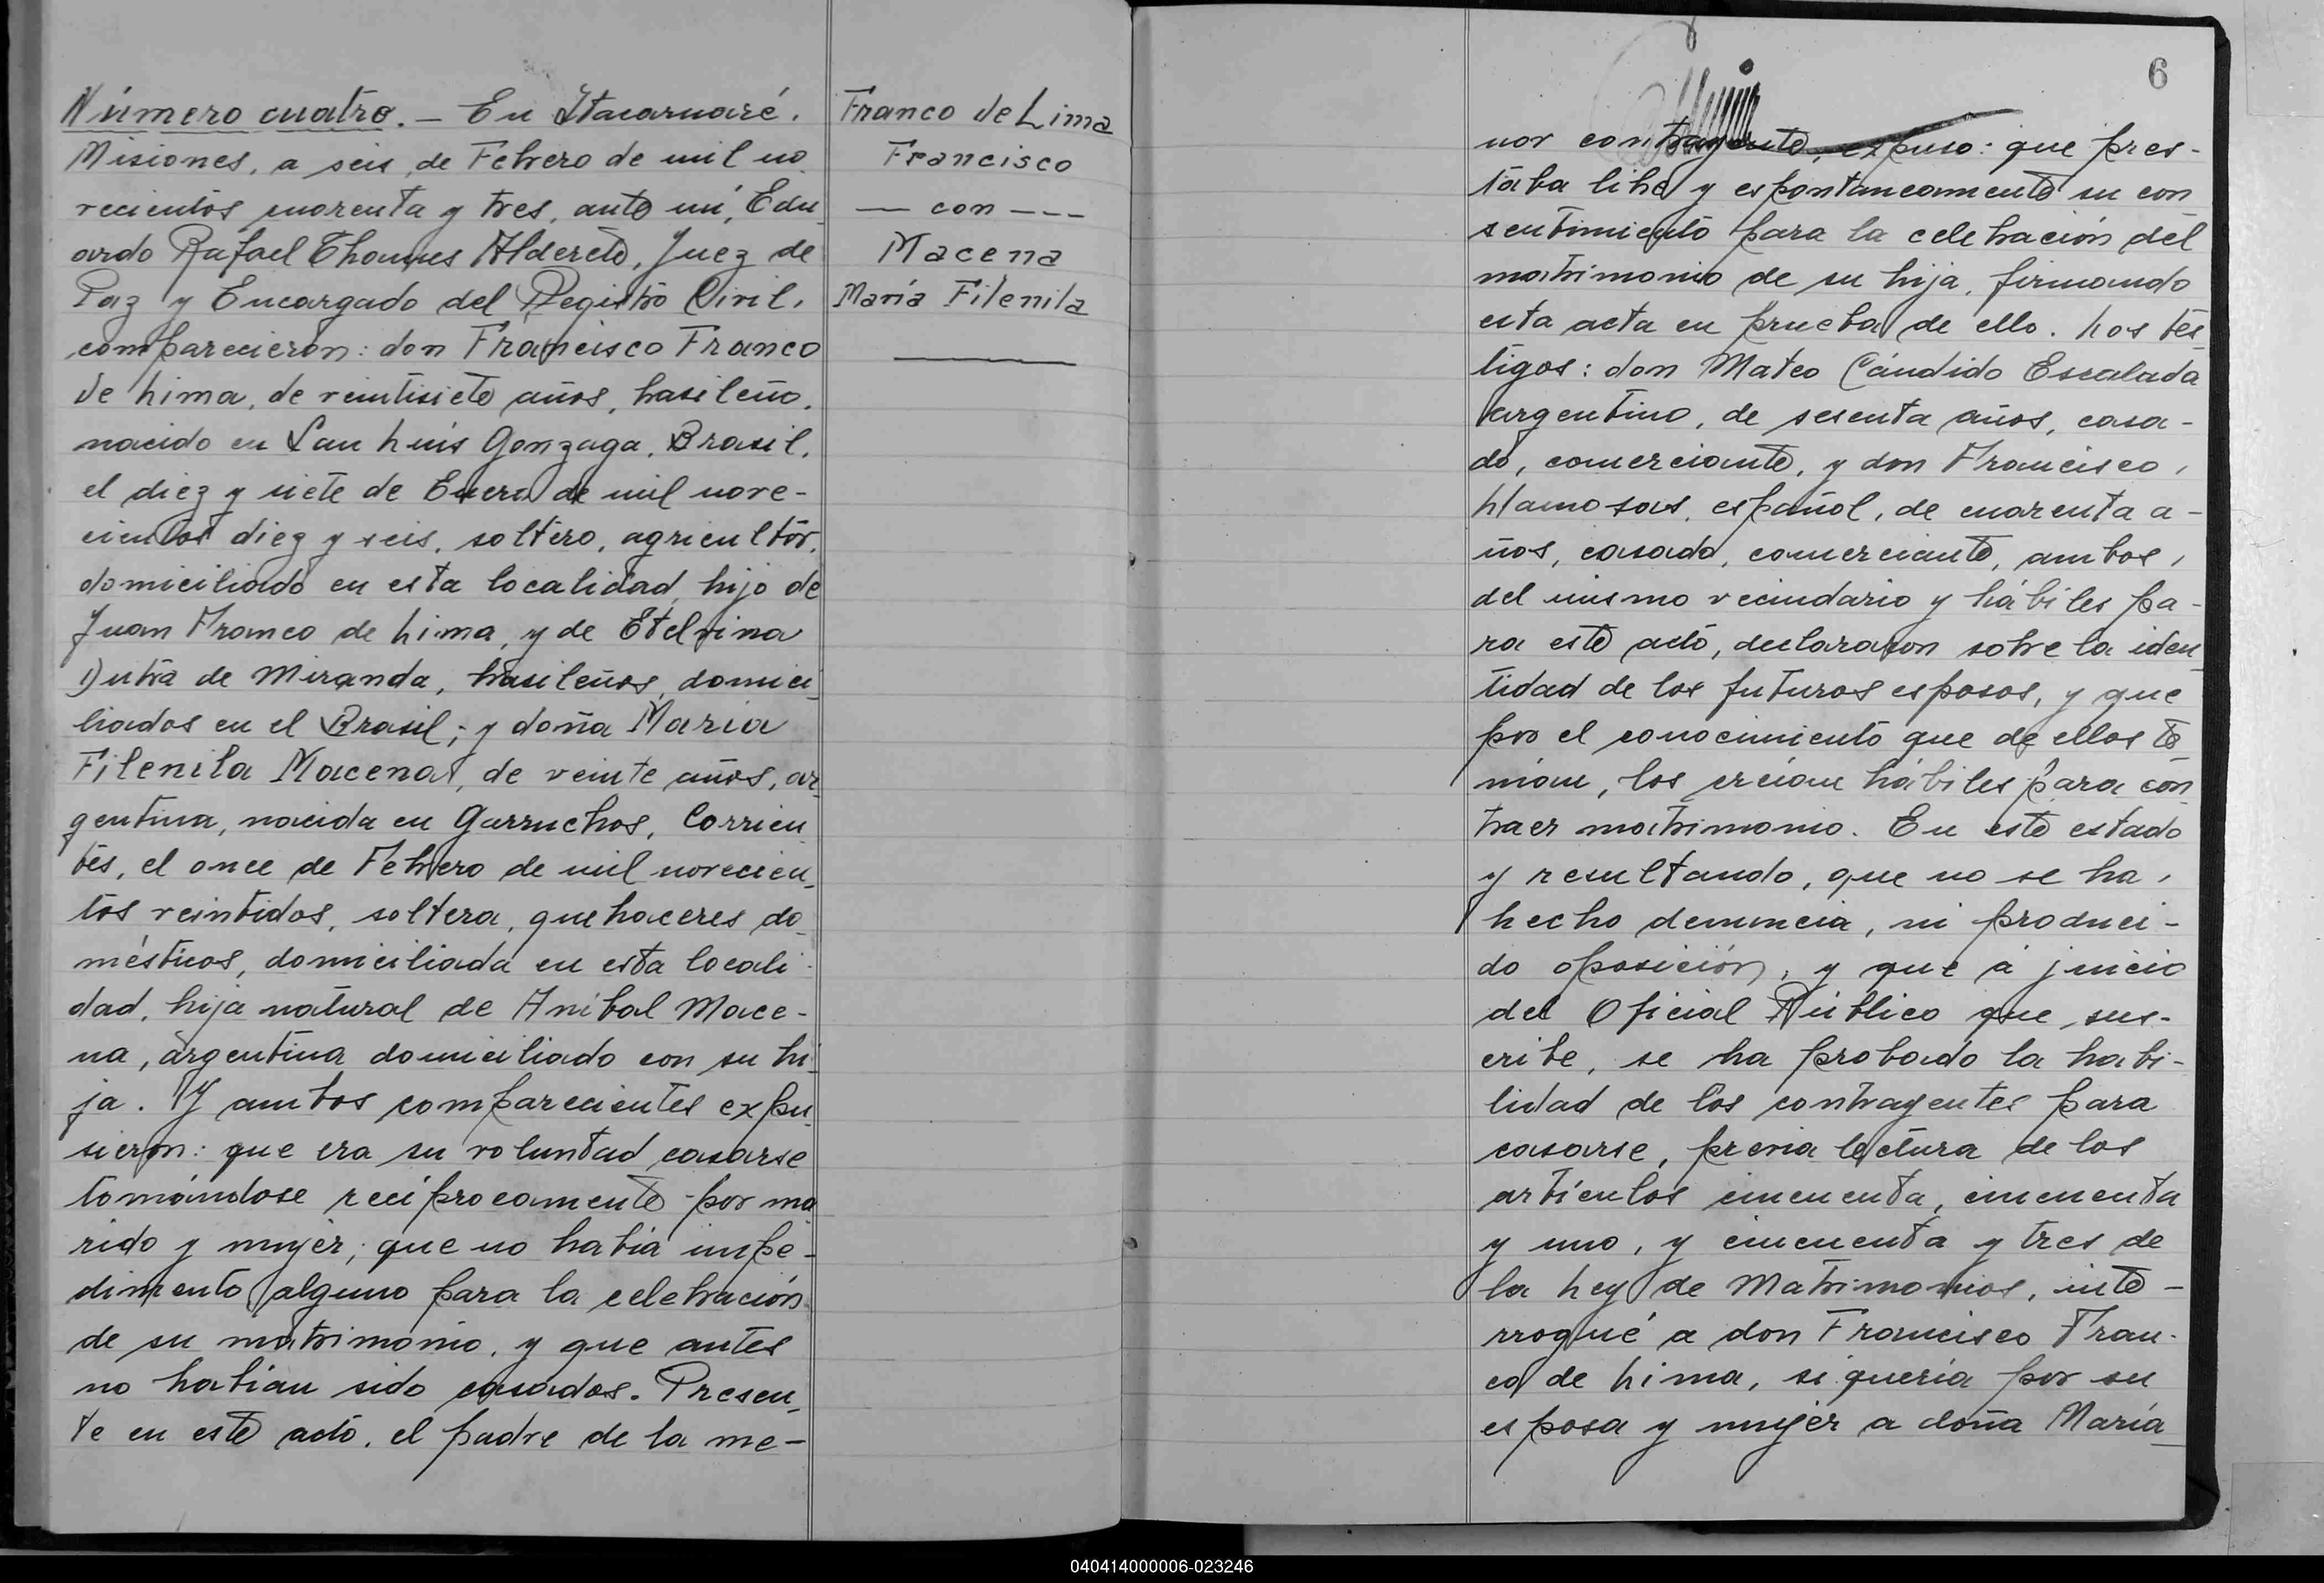 Número cuatro. — En Itacaruaré,
Misiones, a seis de Febrero de mil no
vecientos cuarenta y tres, ante mí, Edu
ardo Rafael Thomes Alderete, Juez de
Paz y Encargado del Registro Civil,
comparecieron: don Francisco Franco
de Lima, de veintisiete años, brasileño,
nacido en San Luis Gonzaga, Brasil,
el diez y siete de Enero de mil nove-
cientos diez y seis, soltero, agricultor,
domiciliado en esta localidad, hijo de
Juan Franco de Lima, y de Etelvina
Dutra de Miranda, brasileños, domici
liados en el Brasil; y doña María
Filenila Macena, de veinte años, ar
gentina, nacida en Garruchos, Corrien
tes, el once de Febrero de mil novecien
tos veintidos, soltera, quehaceres do
mésticos, domiciliada en esta locali-
dad, hija natural de Anibal Mace-
na, argentina domiciliado con su hi
ja. Y ambos comparecientes expu
sieron: que era su voluntad casarse
tomándose recíprocamente por ma
rido y mujer; que no había impe-
dimento alguno para la celebración
de su matrimonio, y que antes
no habían sido casados. Presen
te en este acto, el padre de la me-
Franco de Lima
Francisco
— con ---
Macena
María Filenila
6
nor contrayente, expuso: que pres-
taba libre y espontaneamente su con
sentimiento para la celebración del
matrimonio de su hija, firmando
esta acta en prueba de ello. Los tes
tigos: don Mateo Cándido Escalada
argentino, de sesenta años, casa-
do, comerciante, y don Francisco,
Llamosas, español, de cuarenta a-
ños, casado, comerciante, ambos,
del mismo vecindario y hábiles pa-
ra este acto, declararon sobre la iden
tidad de los futuros esposos, y que
por el conocimiento que de ellos te
nían, los creían hábiles para con
traer matrimonio. En este estado
y resultando, que no se ha,
hecho denuncia, ni produci-
do oposición, y que á juicio
del Oficial Público que sus-
cribe, se ha probado la habi-
lidad de los contrayentes para
casarse, previa lectura de los
artículos cincuenta, cincuenta
y uno, y cincuenta y tres de
la Ley de Matrimonios, inte-
rrogué a don Francisco Fran-
co de Lima, si quería por su
esposa y mujer a doña María
040414000006-023246